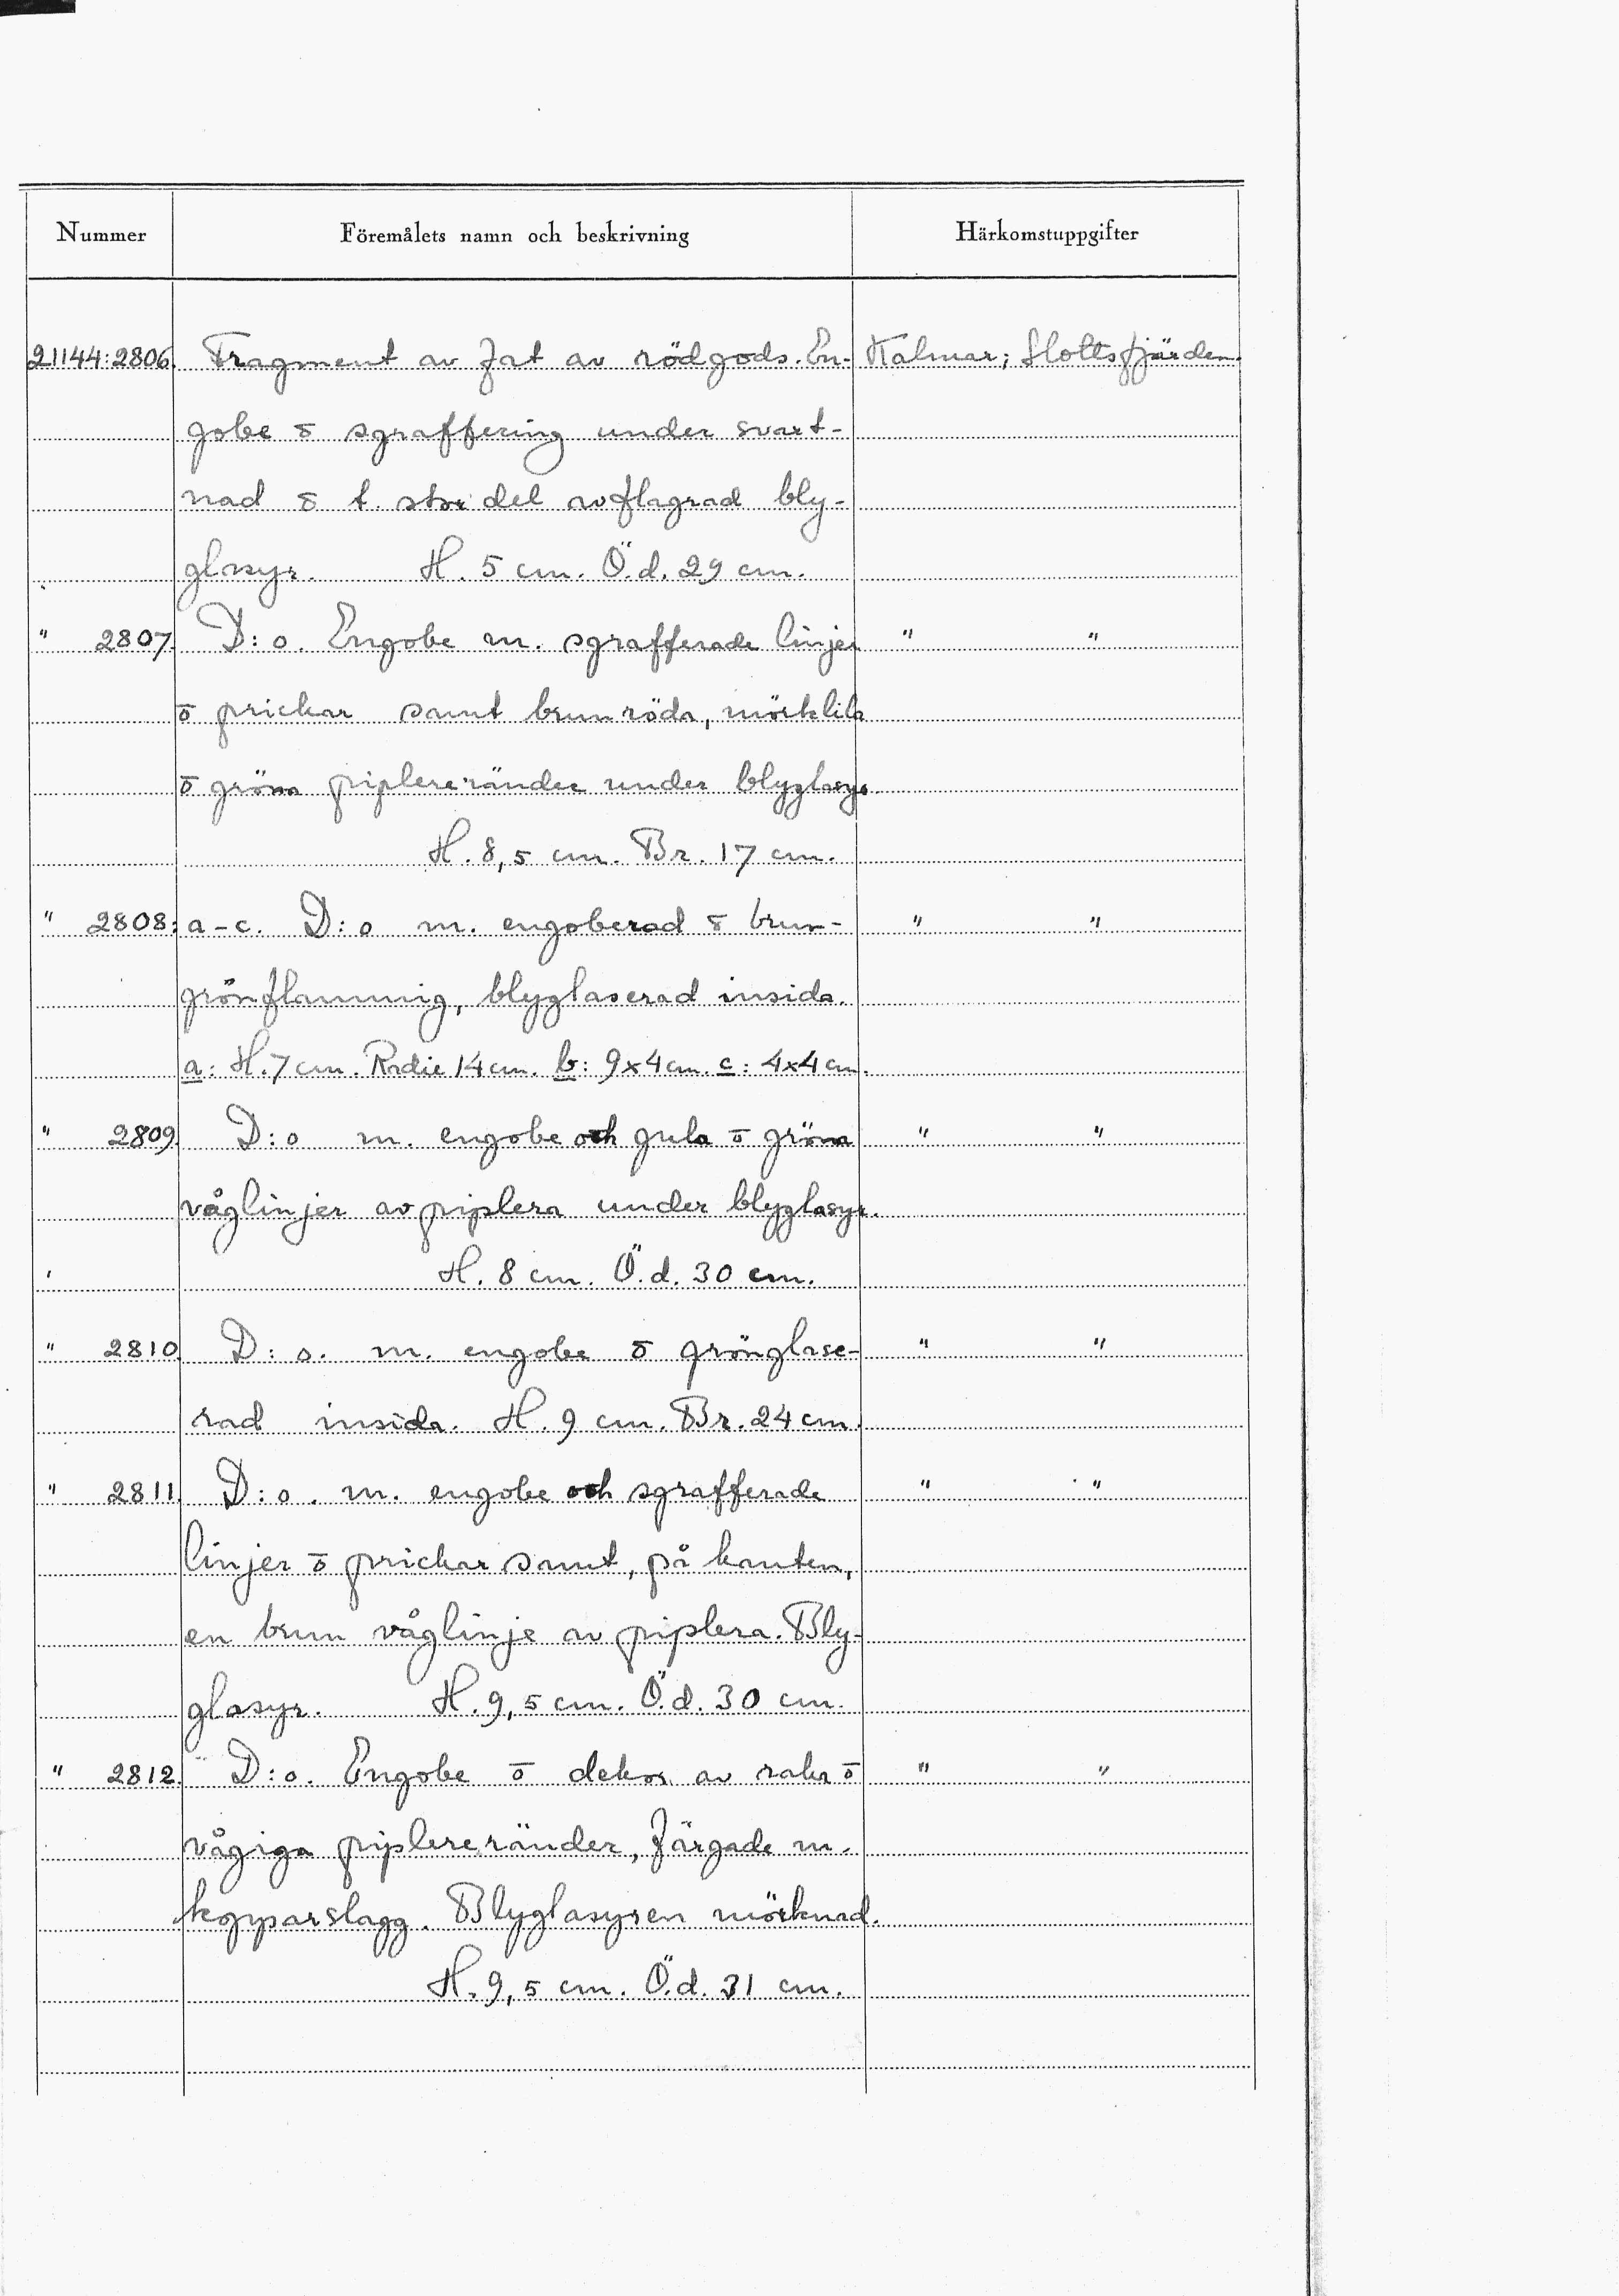 Nummer Föremålets namn och beskrivning Härkomstuppgifter
21144:2806. Fragment av fat av rödgods. En- Kalmar; Slottsfjärden.
gobe ō sgraffering under svart-
nad ō t. stor del avflagrad bly-
glasyr. H. 5 cm. Ö.d. 29 cm.
" 2807. D:o. Engobe m. sgrafferade linjer " "
ō prickar samt brunröda, mörklila
ō gröna piplereränder under blyglasyr.
H. 8,5 cm. Br. 17 cm.
" 2808: a-c. D:o m. engoberad ō brun- " "
grönflammig, blyglaserad insida.
a: H. 7 cm. Radie 14 cm. b: 9x4 cm. c: 4x4 cm.
" 2809. D:o m. engobe och gula ō gröna " "
våglinjer av piplera under blyglasyr.
H. 8 cm. Ö.d. 30 cm.
" 2810. D:o. m. engobe ō grönglase- " "
rad insida. H. 9 cm. Br. 24 cm.
" 2811. D:o. m. engobe och sgrafferade " "
linjer ō prickar samt, på kanten,
en brun våglinje av piplera. Bly-
glasyr. H. 9,5 cm. Ö.d. 30 cm.
" 2812. D:o. Engobe ō dekor av raka ō " "
vågiga piplereränder, färgade m.
kopparslagg. Blyglasyren mörknad.
H. 9,5 cm. Ö.d. 31 cm.